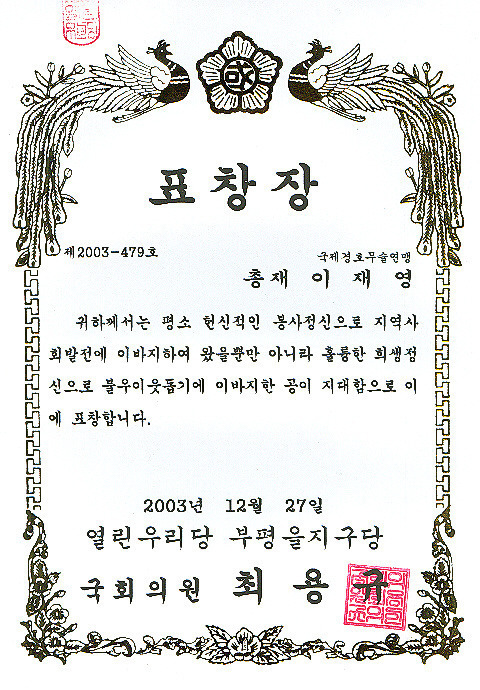 표창장
제2003-479호
국제경호무술연맹
총재 이재영
귀하께서는 평소 헌신적인 봉사정신으로 지역사
회발전에 이바지하여 왔을뿐만 아니라 훌륭한 희생정
신으로 불우이웃돕기에 이바지한 공이 지대함으로 이
에 표창합니다.
2003년 12월 27일
열린우리당 부평을지구당
국회의원 최용규